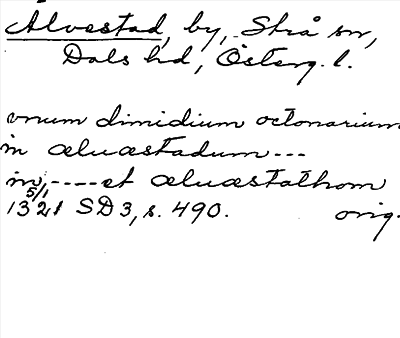 Alvestad, by, Strå sn,
Dals hd, Österg. l.
vnum dimidium octonarium
in æluæstadum ---
in ---- et æluæstathom
5/1
1321 SD 3, s. 490. orig.